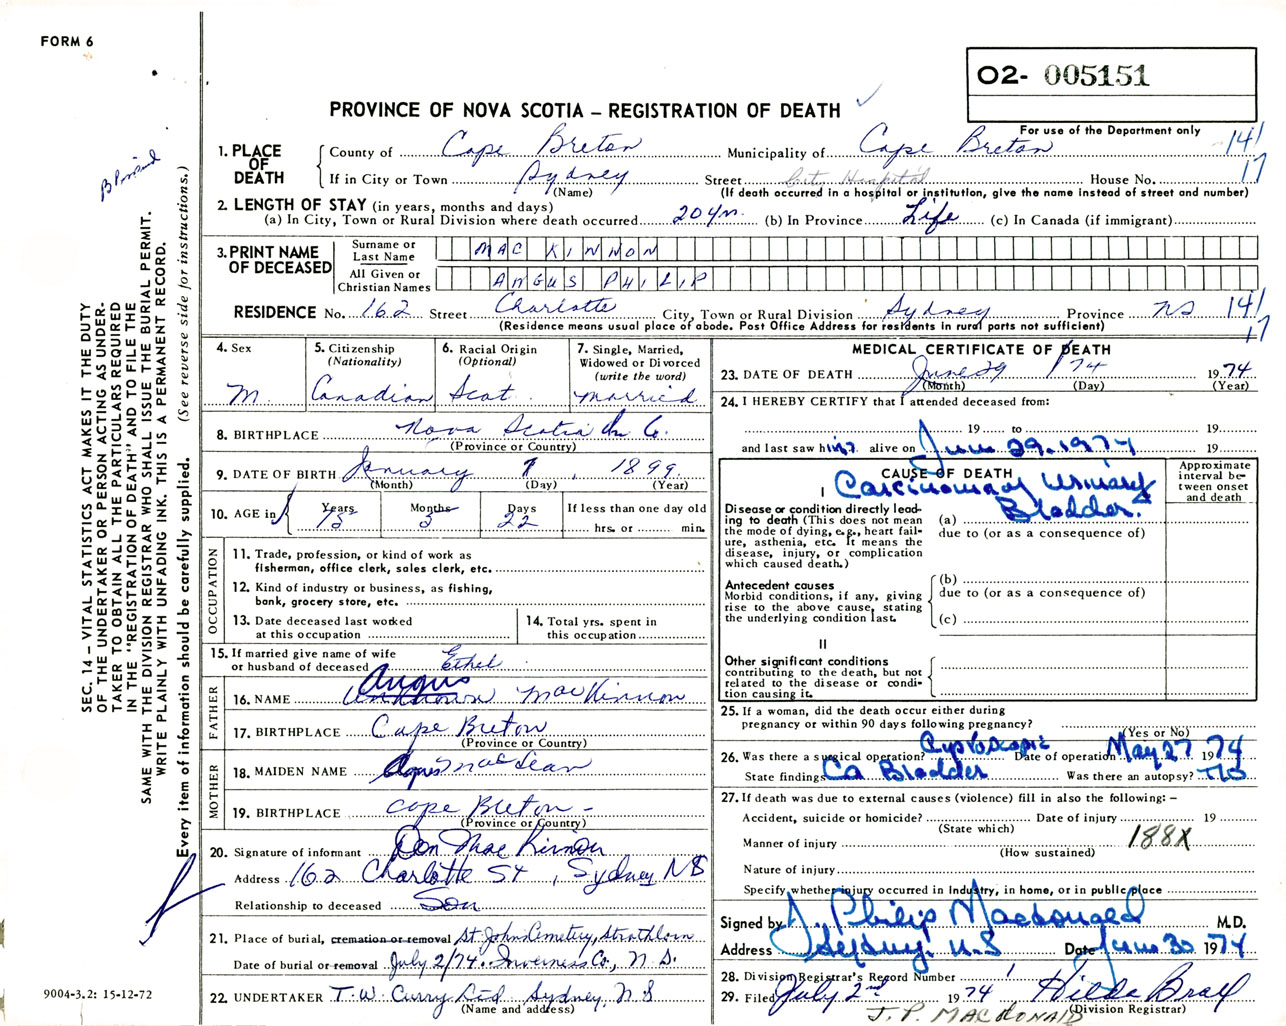 FORM 6
O2- 005151
PROVINCE OF NOVA SCOTIA – REGISTRATION OF DEATH ✓
For use of the Department only
1. PLACE OF DEATH
County of Cape Breton Municipality of Cape Breton 14/
17
If in City or Town Sydney Street City Hospital House No.
(Name) (If death occurred in a hospital or institution, give the name instead of street and number)
2. LENGTH OF STAY (in years, months and days)
(a) In City, Town or Rural Division where death occurred 20 yrs. (b) In Province Life (c) In Canada (if immigrant)
3. PRINT NAME OF DECEASED
Surname or Last Name MAC KINNON
All Given or Christian Names ANGUS PHILIP
RESIDENCE No. 162 Street Charlotte City, Town or Rural Division Sydney Province NS 14/
17
(Residence means usual place of abode. Post Office Address for residents in rural parts not sufficient)
4. Sex
M.
5. Citizenship
(Nationality)
Canadian
6. Racial Origin
(Optional)
Scot
7. Single, Married,
Widowed or Divorced
(write the word)
married
8. BIRTHPLACE Nova Scotia Co.
(Province or Country)
9. DATE OF BIRTH January 7, 1899.
(Month) (Day) (Year)
10. AGE in Years 75 Months 5 Days 22
If less than one day old
hrs. or min.
OCCUPATION
11. Trade, profession, or kind of work as
fisherman, office clerk, sales clerk, etc.
12. Kind of industry or business, as fishing,
bank, grocery store, etc.
13. Date deceased last worked
at this occupation
14. Total yrs. spent in
this occupation
15. If married give name of wife
or husband of deceased Ethel
FATHER
Angus
16. NAME Unknown MacKinnon
17. BIRTHPLACE Cape Breton
(Province or Country)
MOTHER
18. MAIDEN NAME Agnes MacLean
19. BIRTHPLACE Cape Breton –
(Province or Country)
20. Signature of informant Don MacKinnon
Address 162 Charlotte St, Sydney NS
Relationship to deceased Son
21. Place of burial, cremation or removal St. John Cemetery, Strathlorn
Date of burial or removal July 2/74. Inverness Co., N.S.
22. UNDERTAKER T.W. Curry Ltd. Sydney, N S
(Name and address)
MEDICAL CERTIFICATE OF DEATH
23. DATE OF DEATH June 29 / 74 1974
(Month) (Day) (Year)
24. I HEREBY CERTIFY that I attended deceased from:
19 to 19
and last saw him alive on June 29, 1974 19
CAUSE OF DEATH
Approximate interval between onset and death
I Carcinoma of Urinary
Bladder.
Disease or condition directly leading to death (This does not mean the mode of dying, e.g., heart failure, asthenia, etc. It means the disease, injury, or complication which caused death.)
(a)
due to (or as a consequence of)
Antecedent causes
Morbid conditions, if any, giving rise to the above cause, stating the underlying condition last.
(b)
due to (or as a consequence of)
(c)
II
Other significant conditions
contributing to the death, but not related to the disease or condition causing it.
25. If a woman, did the death occur either during
pregnancy or within 90 days following pregnancy?
(Yes or No)
26. Was there a surgical operation? Cystoscopic Date of operation May 27 1974
State findings Ca Bladder Was there an autopsy? No
27. If death was due to external causes (violence) fill in also the following: –
Accident, suicide or homicide? Date of injury 19
(State which)
Manner of injury 188X
(How sustained)
Nature of injury
Specify whether injury occurred in Industry, in home, or in public place
Signed by J. Philip Macdougald M.D.
Address Sydney, N.S Date June 30 1974
28. Division Registrar's Record Number 1
29. Filed July 2nd 1974 Hilda
(Division Registrar)
J. P. MACDONALD
SEC. 14 – VITAL STATISTICS ACT MAKES IT THE DUTY
OF THE UNDERTAKER OR PERSON ACTING AS UNDER-
TAKER TO OBTAIN ALL THE PARTICULARS REQUIRED
IN THE "REGISTRATION OF DEATH" AND TO FILE THE
SAME WITH THE DIVISION REGISTRAR WHO SHALL ISSUE THE BURIAL PERMIT.
WRITE PLAINLY WITH UNFADING INK. THIS IS A PERMANENT RECORD.
Every item of information should be carefully supplied. (See reverse side for instructions.)
9004-3.2: 15-12-72